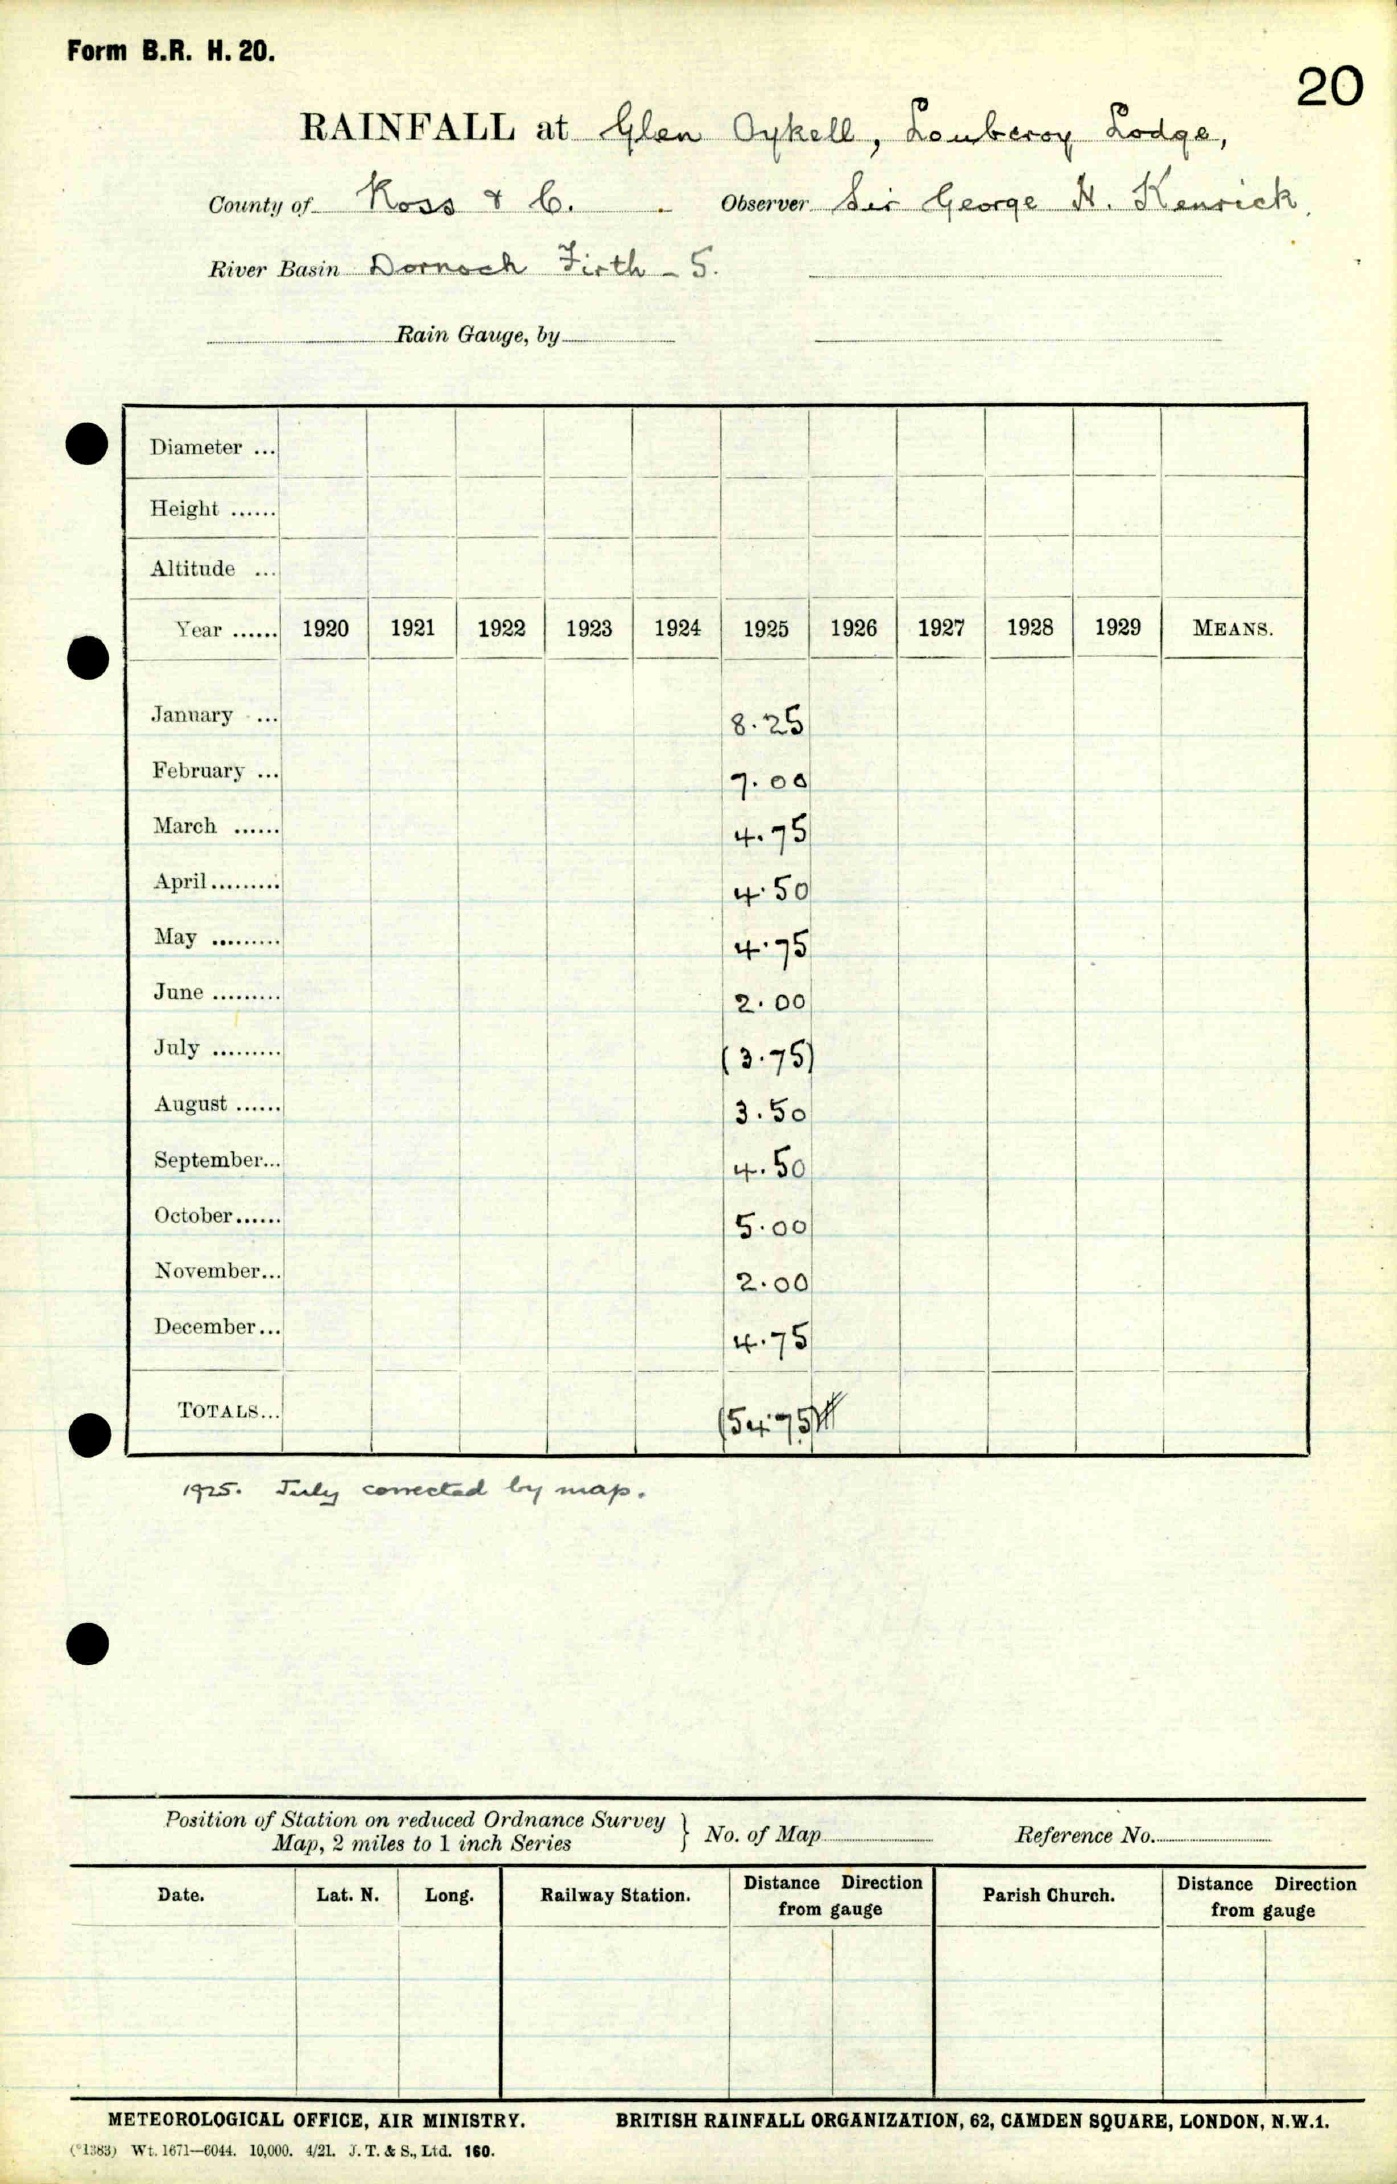 Form B.R. H. 20.
20
RAINFALL at Glen Oykell, Louberoy Lodge,
County of Ross & C. Observer Sir George H. Kenrick.
River Basin Dornoch Firth - 5.
Rain Gauge, by
Diameter ...
Height ......
Altitude ...
Year ...... 1920 1921 1922 1923 1924 1925 1926 1927 1928 1929 MEANS.
January ... 8.25
February ... 7.00
March ...... 4.75
April ......... 4.50
May ......... 4.75
June ......... 2.00
July ......... (3.75)
August ...... 3.50
September... 4.50
October...... 5.00
November... 2.00
December... 4.75
TOTALS... (54.75)
1925. July corrected by map.
Position of Station on reduced Ordnance Survey
Map, 2 miles to 1 inch Series } No. of Map Reference No.
Date. Lat. N. Long. Railway Station. Distance Direction from gauge Parish Church. Distance Direction from gauge
METEOROLOGICAL OFFICE, AIR MINISTRY. BRITISH RAINFALL ORGANIZATION, 62, CAMDEN SQUARE, LONDON, N.W.1.
(*1383) Wt. 1671—6044. 10,000. 4/21. J. T. & S., Ltd. 160.